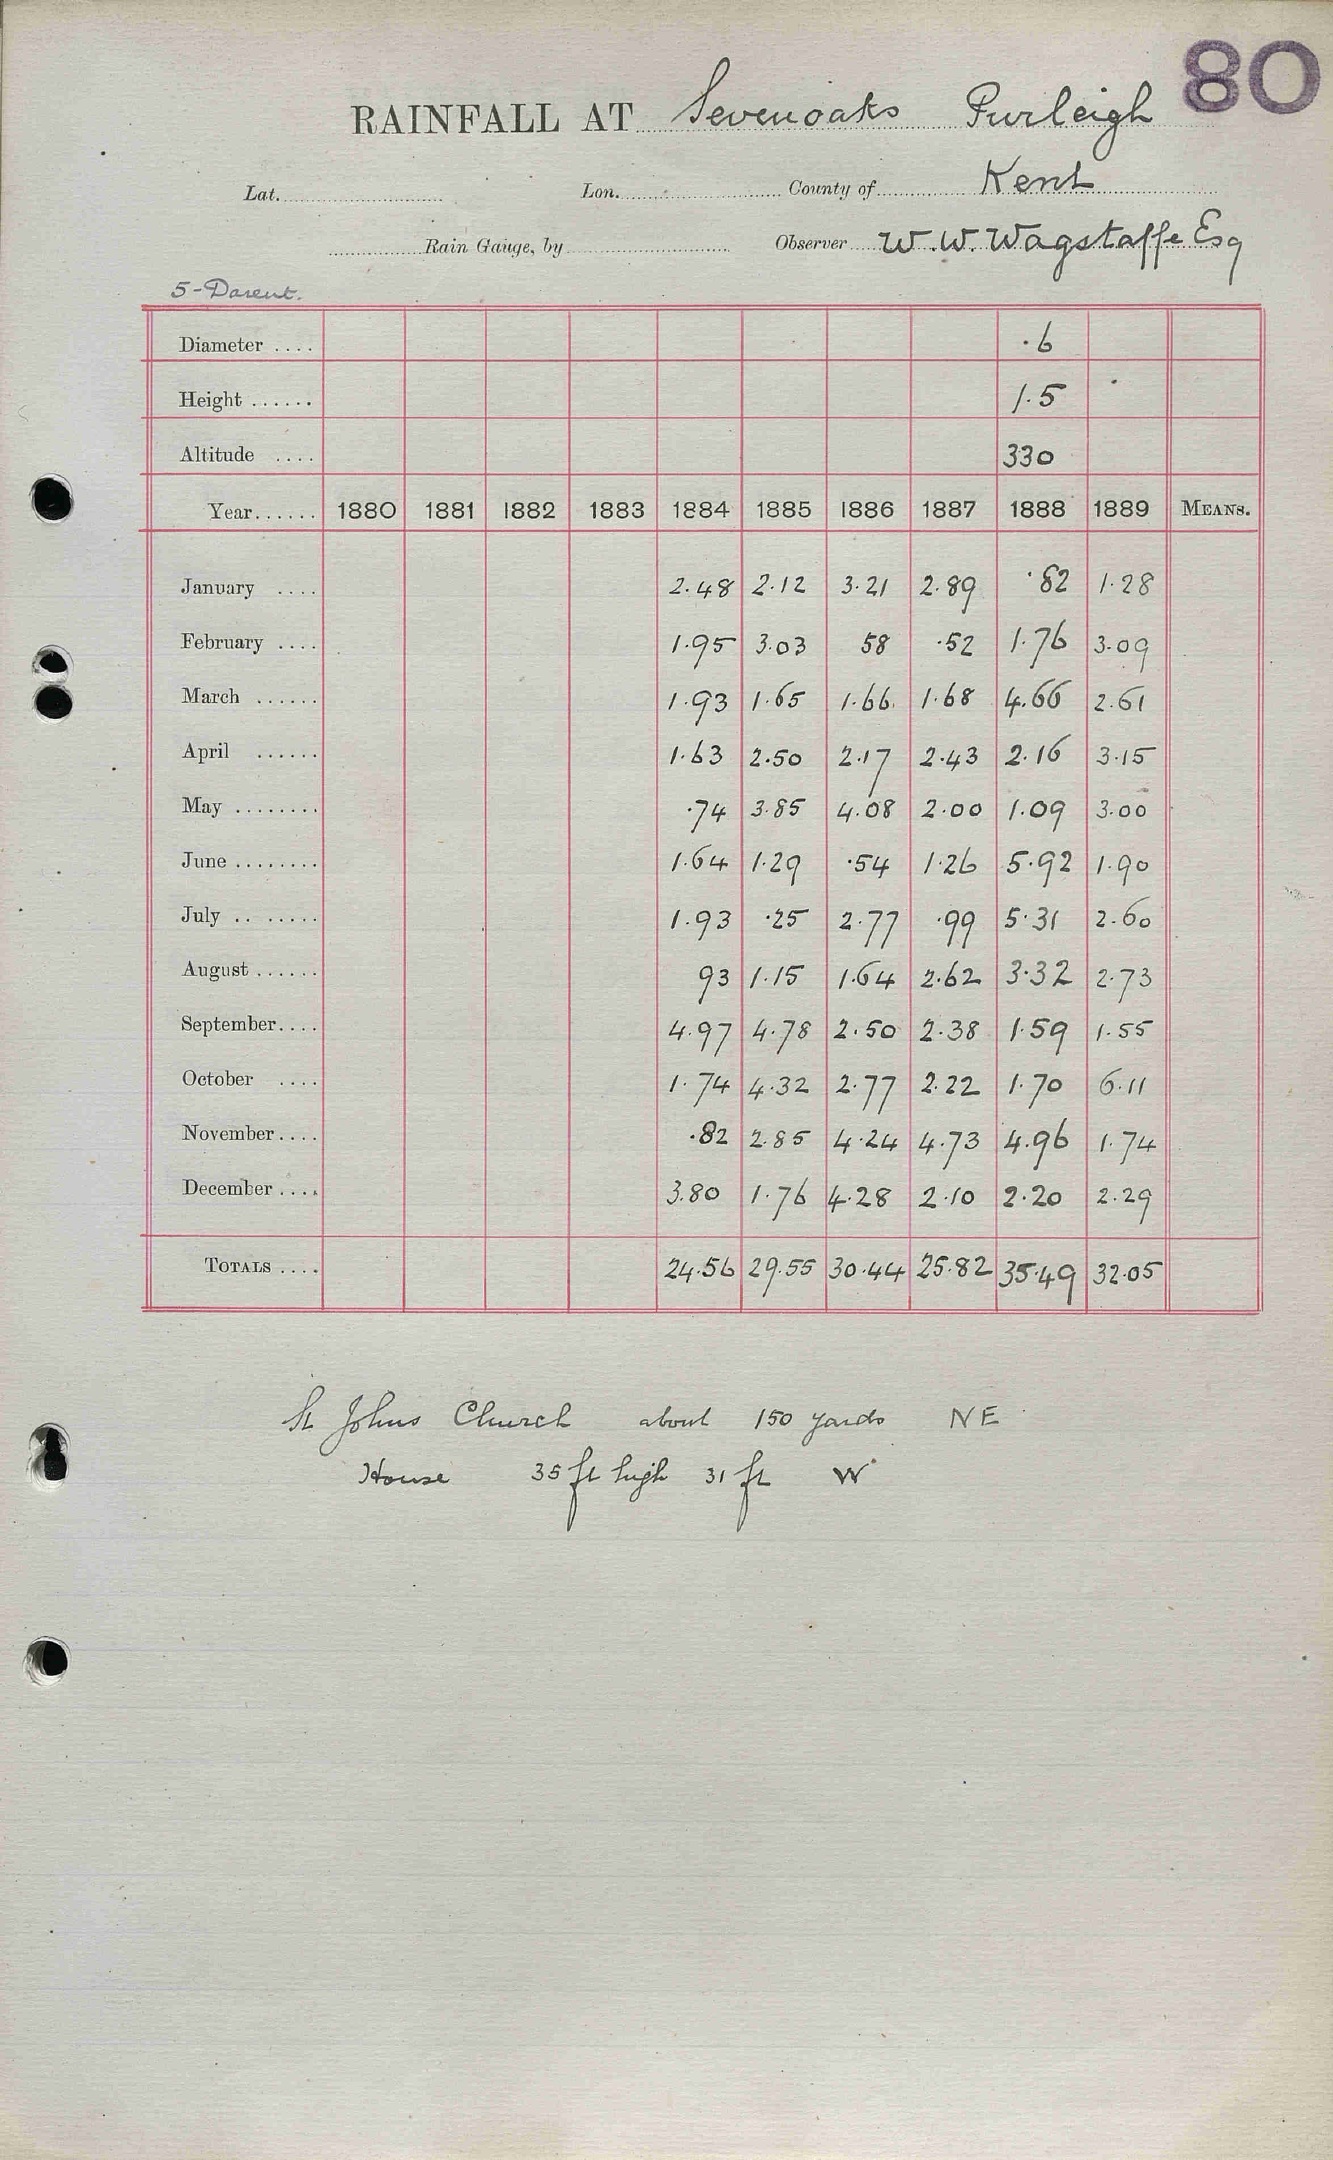 80
RAINFALL AT Sevenoaks Purleigh
Lat. Lon. County of Kent
Rain Gauge, by Observer W. W. Wagstaffe Esq
5-Darent.
Diameter .... .6
Height ...... 1.5
Altitude .... 330
Year...... 1880 1881 1882 1883 1884 1885 1886 1887 1888 1889 MEANS.
January .... 2.48 2.12 3.21 2.89 .82 1.28
February .... 1.95 3.03 58 .52 1.76 3.09
March ...... 1.93 1.65 1.66 1.68 4.66 2.61
April ...... 1.63 2.50 2.17 2.43 2.16 3.15
May ........ .74 3.85 4.08 2.00 1.09 3.00
June ........ 1.64 1.29 .54 1.26 5.92 1.90
July .. ..... 1.93 .25 2.77 .99 5.31 2.60
August ...... 93 1.15 1.64 2.62 3.32 2.73
September.... 4.97 4.78 2.50 2.38 1.59 1.55
October .... 1.74 4.32 2.77 2.22 1.70 6.11
November.... .82 2.85 4.24 4.73 4.96 1.74
December .... 3.80 1.76 4.28 2.10 2.20 2.29
TOTALS .... 24.56 29.55 30.44 25.82 35.49 32.05
St Johns Church about 150 yards NE
House 35 ft high 31 ft W